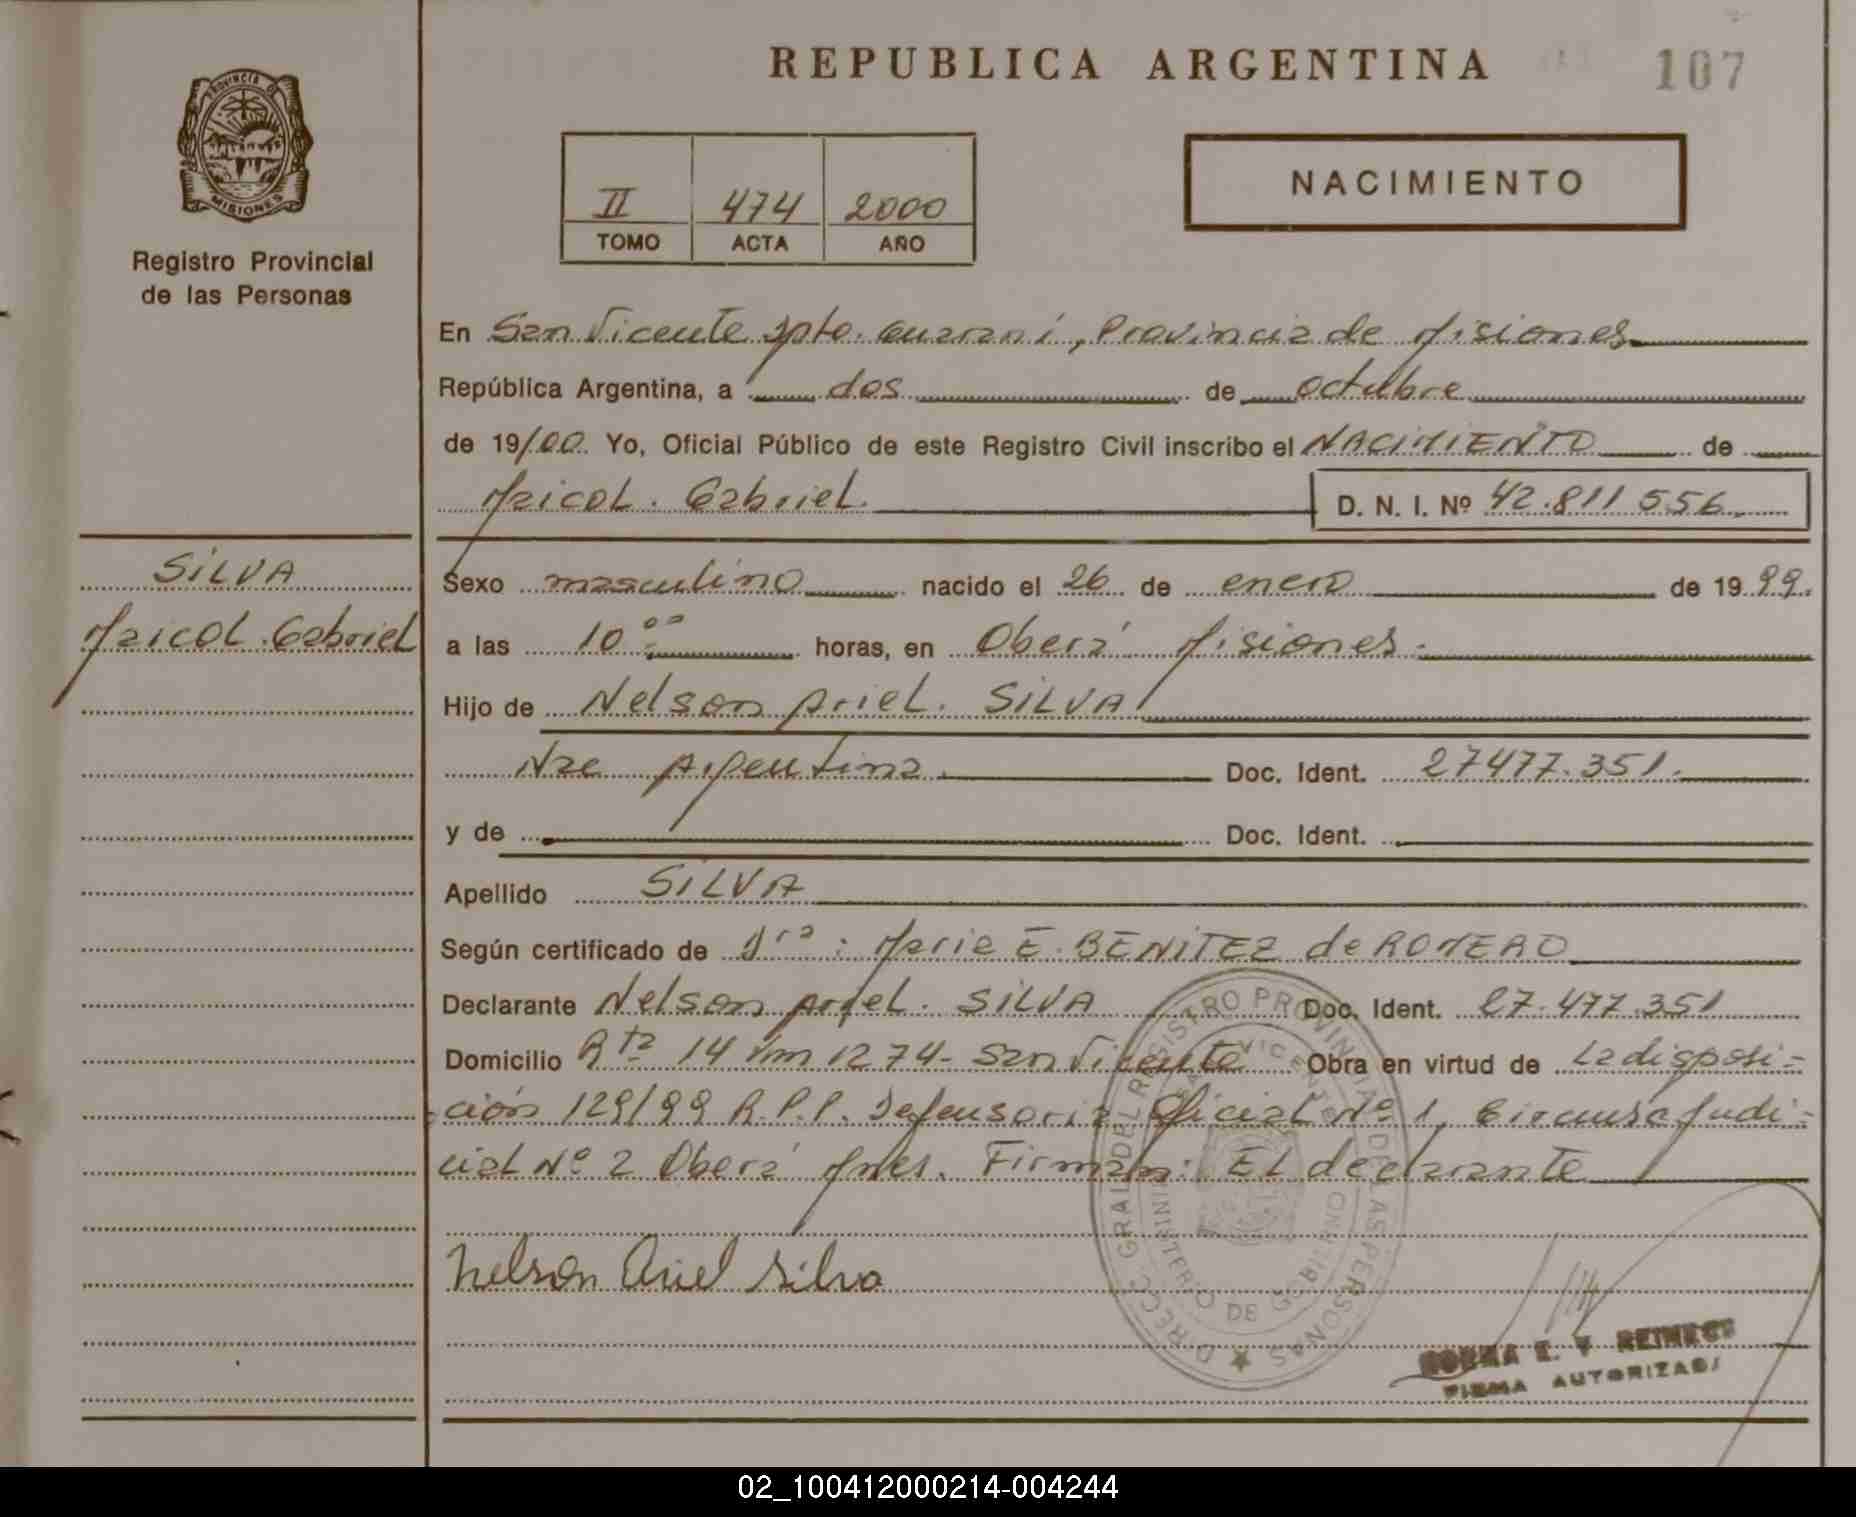 REPUBLICA ARGENTINA
107
PROVINCIA DE
MISIONES
Registro Provincial
de las Personas
II 474 2000
TOMO ACTA AÑO
NACIMIENTO
En San Vicente Dpto. Guaraní, Provincia de Misiones
República Argentina, a dos de octubre
de 19/00. Yo, Oficial Público de este Registro Civil inscribo el NACIMIENTO de
Maicol. Gabriel. D. N. I. Nº 42.811 556
SILVA
Maicol. Gabriel
Sexo masculino nacido el 26 de enero de 1999.
a las 10 00 horas, en Oberá Misiones.
Hijo de Nelson Ariel. SILVA
Nac Argentina. Doc. Ident. 27477.351.
y de Doc. Ident.
Apellido SILVA
Según certificado de Dra: Maria E. BENITEZ de ROMERO
Declarante Nelson Ariel. SILVA Doc. Ident. 27.477.351
Domicilio Rta 14 Km 1274- San Vicente Obra en virtud de La disposi=
=ción 129/99 R.P.P. Defensoria Oficial Nº 1, Circunsc Judi=
cial Nº 2 Oberá Mnes. Firman: El declarante
Nelson Ariel Silva
DIRECC GRAL DEL REGISTRO PROVINCIAL DE LAS PERSONAS
SAN VICENTE
MINISTERIO DE GOBIERNO
NORMA E. V. REINECK
FIRMA AUTORIZADA
02_100412000214-004244